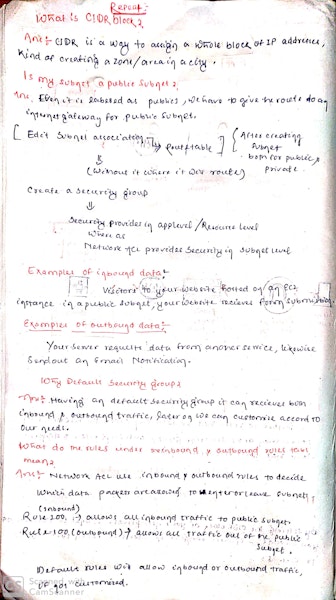 REPORT:-
What is CIDR block?
Ans:- CIDR is a way to assign a whole block of IP addresses,
Kind of creating a zone/area in a city.
Is my subnet a public subnet?
Ans, Even it is labeled as public, we have to give the route to an
internet gateway for public subnet.
[ Edit Subnet association → Route table ] { After creating
Subnet
both for public &
private
(Without it where it will route)
Create a security group
⇓
Security provides in app level / Resource level
Whereas
Network ACL provides security in Subnet level
Examples of inbound data:-
Visitors to your website hosted on an EC2
instance in a public subnet, your website recieve form submission
Examples of outbound data:-
Your server requests data from another service, likewise
Send out an Email Notification.
Why Default Security group?
Ans:- Having an default security group it can recieves both
inbound & outbound traffic, later on we can customize accord to
our needs.
What do the rules under inbound & outbound rules
mean?
Ans:- Network ACL use inbound & outbound rules to decide
Which data to enter or leave subnet
(inbound)
Rule 200 → allows all inbound traffic to public subnet.
Rule 100 (outbound) → allows all traffic out of the public
Subnet.
Default rules will allow inbound or outbound traffic,
if got customized.
Scanned with
CamScanner